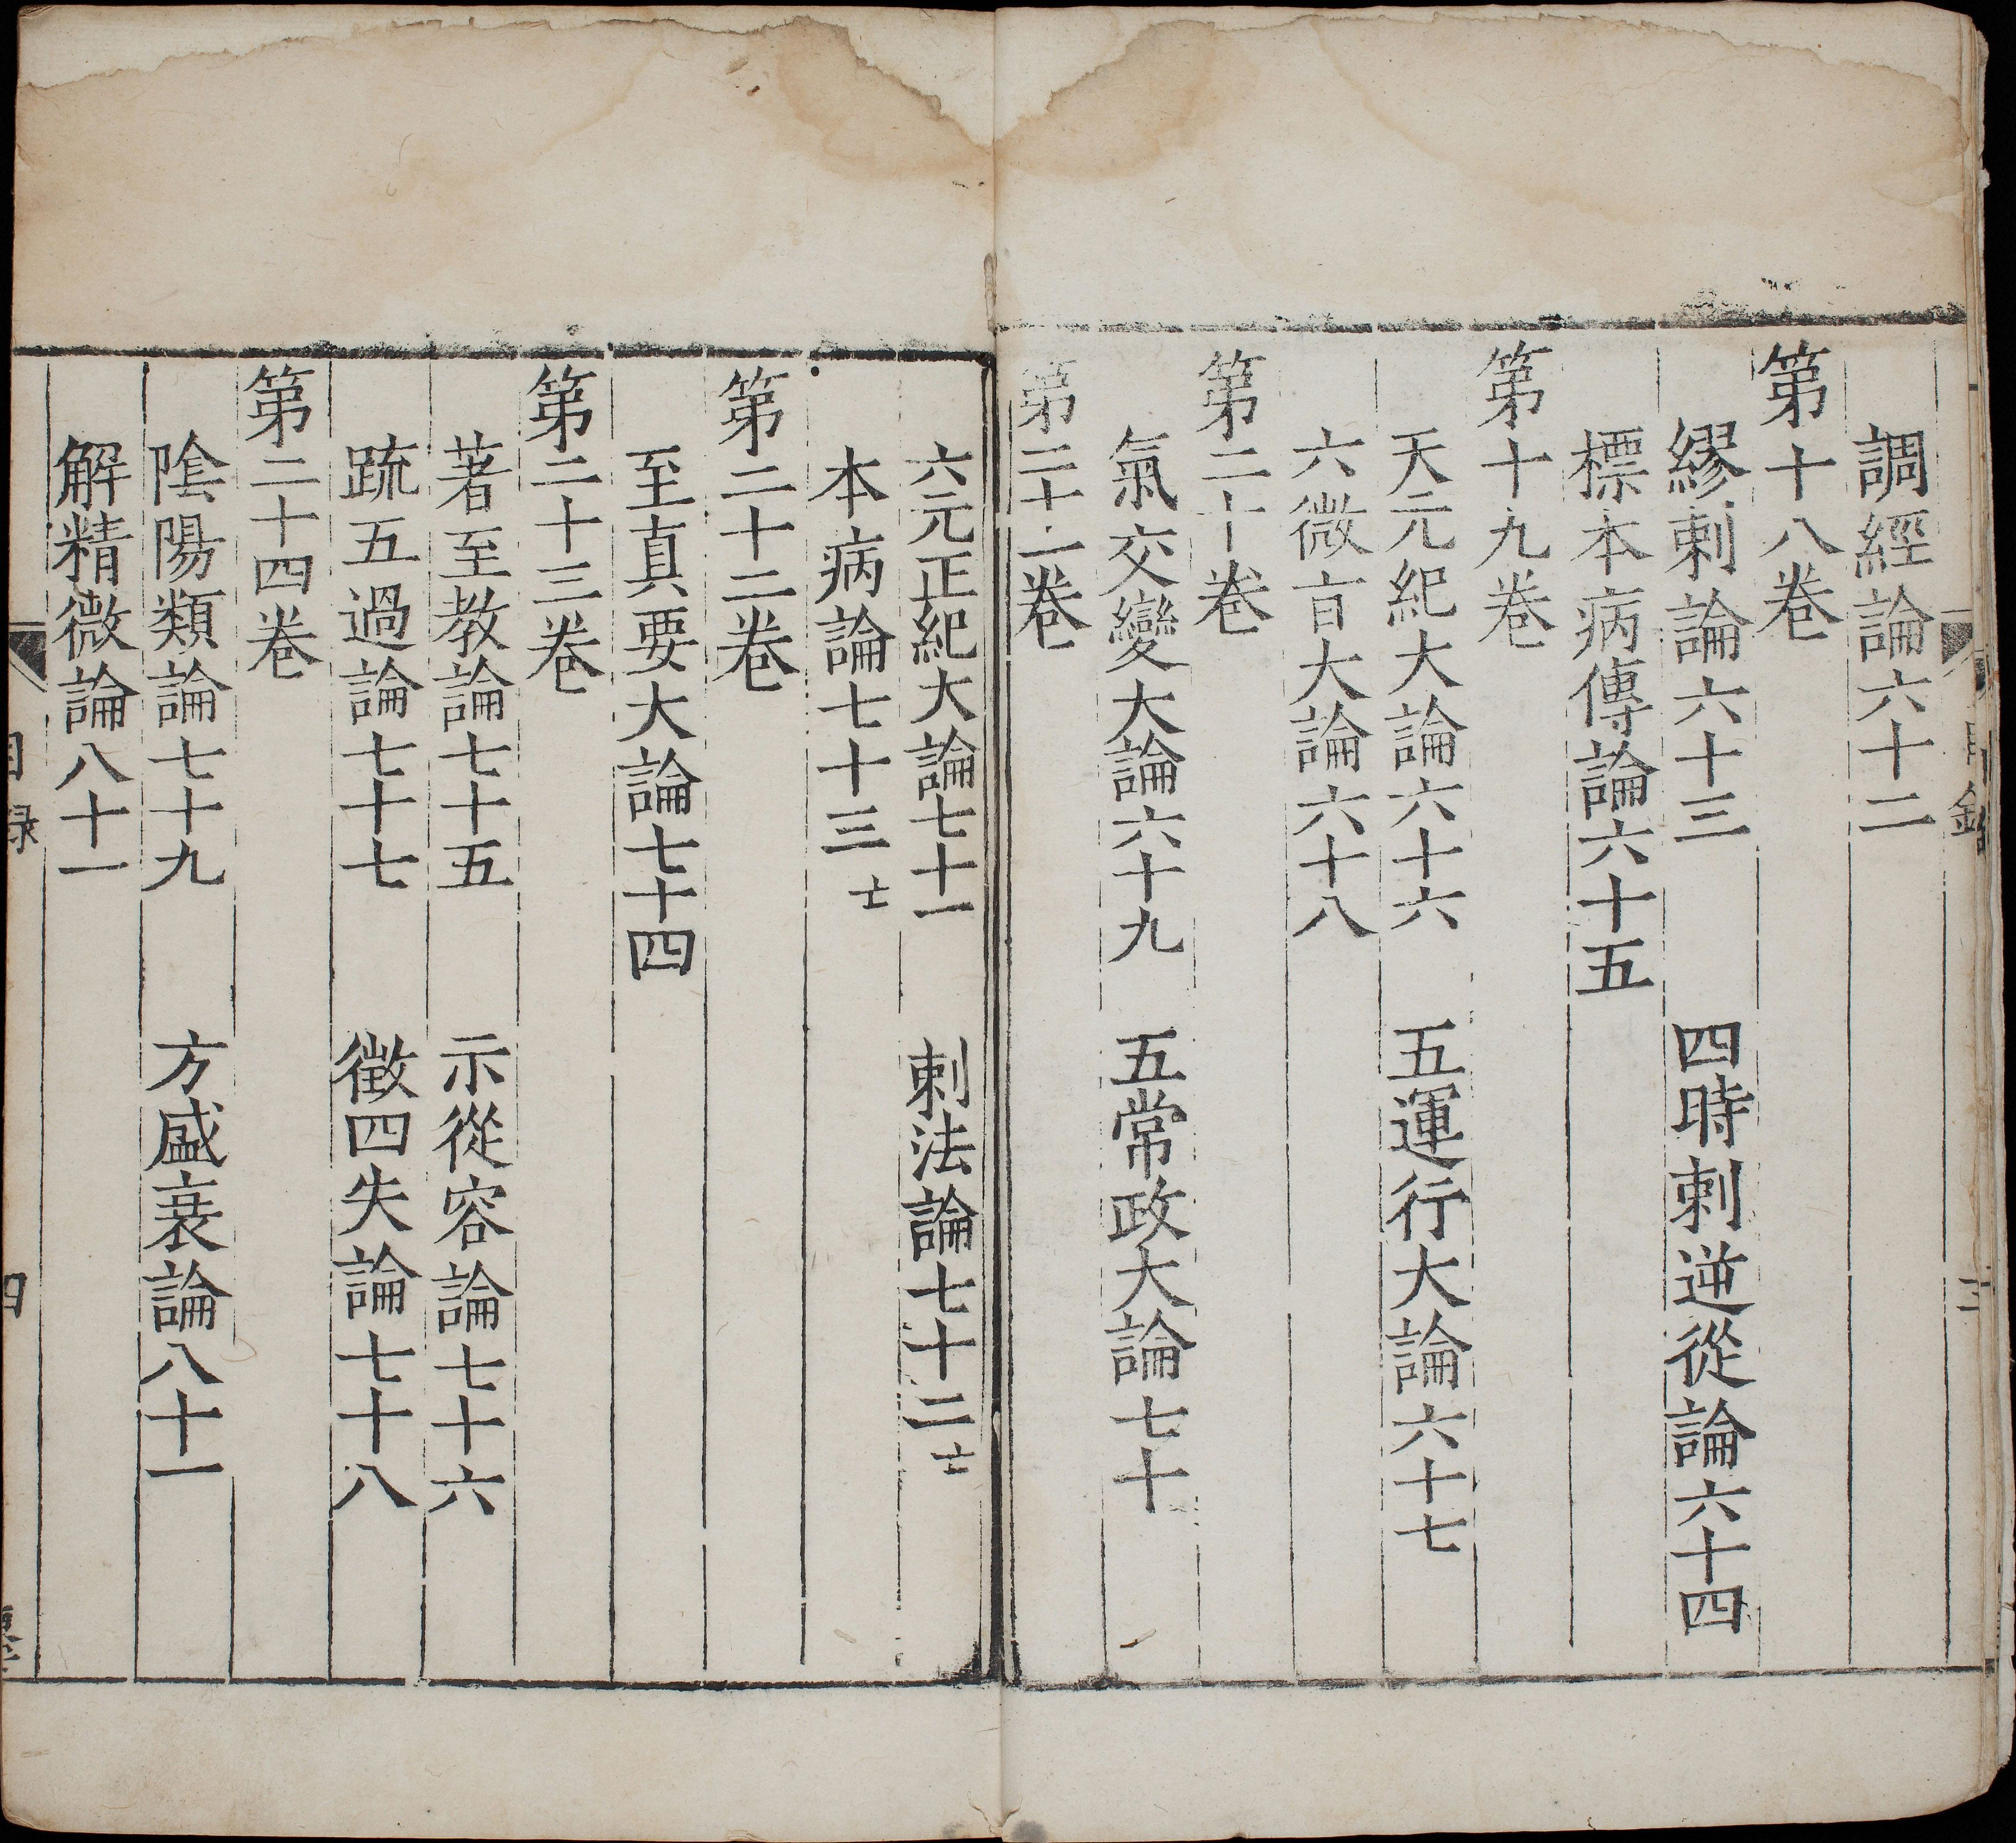 調經論六十二
第十八卷
繆刺論六十三 四時刺逆從論六十四
標本病傳論六十五
第十九卷
天元紀大論六十六 五運行大論六十七
六微旨大論六十八
第二十卷
氣交變大論六十九 五常政大論七十
第二十一卷
六元正紀大論七十一 刺法論七十二亡
本病論七十三亡
第二十二卷
至真要大論七十四
第二十三卷
著至教論七十五 示從容論七十六
疏五過論七十七 徵四失論七十八
第二十四卷
陰陽類論七十九 方盛衰論八十一
解精微論八十一
目録
四